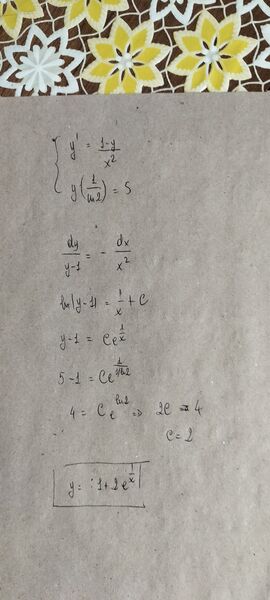 { y' = (1-y)/x²
y(1/ln2) = 5
dy/(y-1) = - dx/x²
ln|y-1| = 1/x + C
y-1 = Ce^(1/x)
5-1 = Ce^(1/(1/ln2))
4 = Ce^(ln2) => 2C = 4
C = 2
y = 1+2e^(1/x)